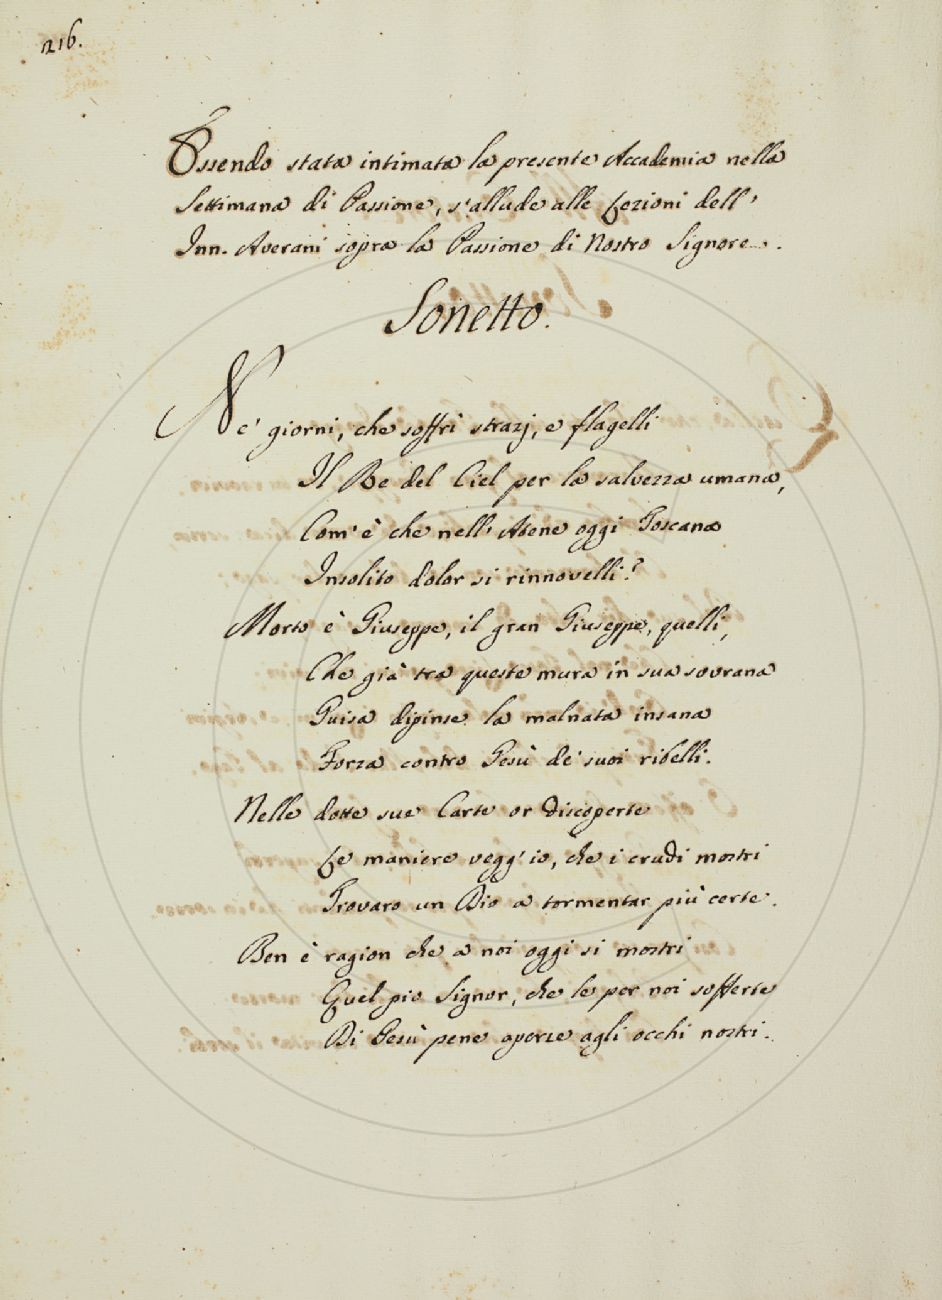 216.
Essendo stata intimata la presente Accademia nella
Settimana di Passione, s'allude alle Lezioni dell'
Inn. Averani sopra la Passione di Nostro Signore.
Sonetto.
Ne' giorni, che soffrì strazj, e flagelli
Il Re del Ciel per la salvezza umana,
Com'è che nell'Atene oggi Toscana
Insolito dolor si rinnovelli?
Morto è Giuseppe, il gran Giuseppe, quelli,
Che già tra queste mura in sua sovrana
Guisa dipinse la malnata insana
Forza contro Gesù de' suoi ribelli.
Nelle dotte sue Carte or discoperte
Le maniere vegg'io, che i crudi mostri
Trovaro un Dio a tormentar più certe.
Ben è ragion che a noi oggi si mostri
Quel pio Signor, che le per noi sofferte
Di Gesù pene aperse agli occhi nostri.